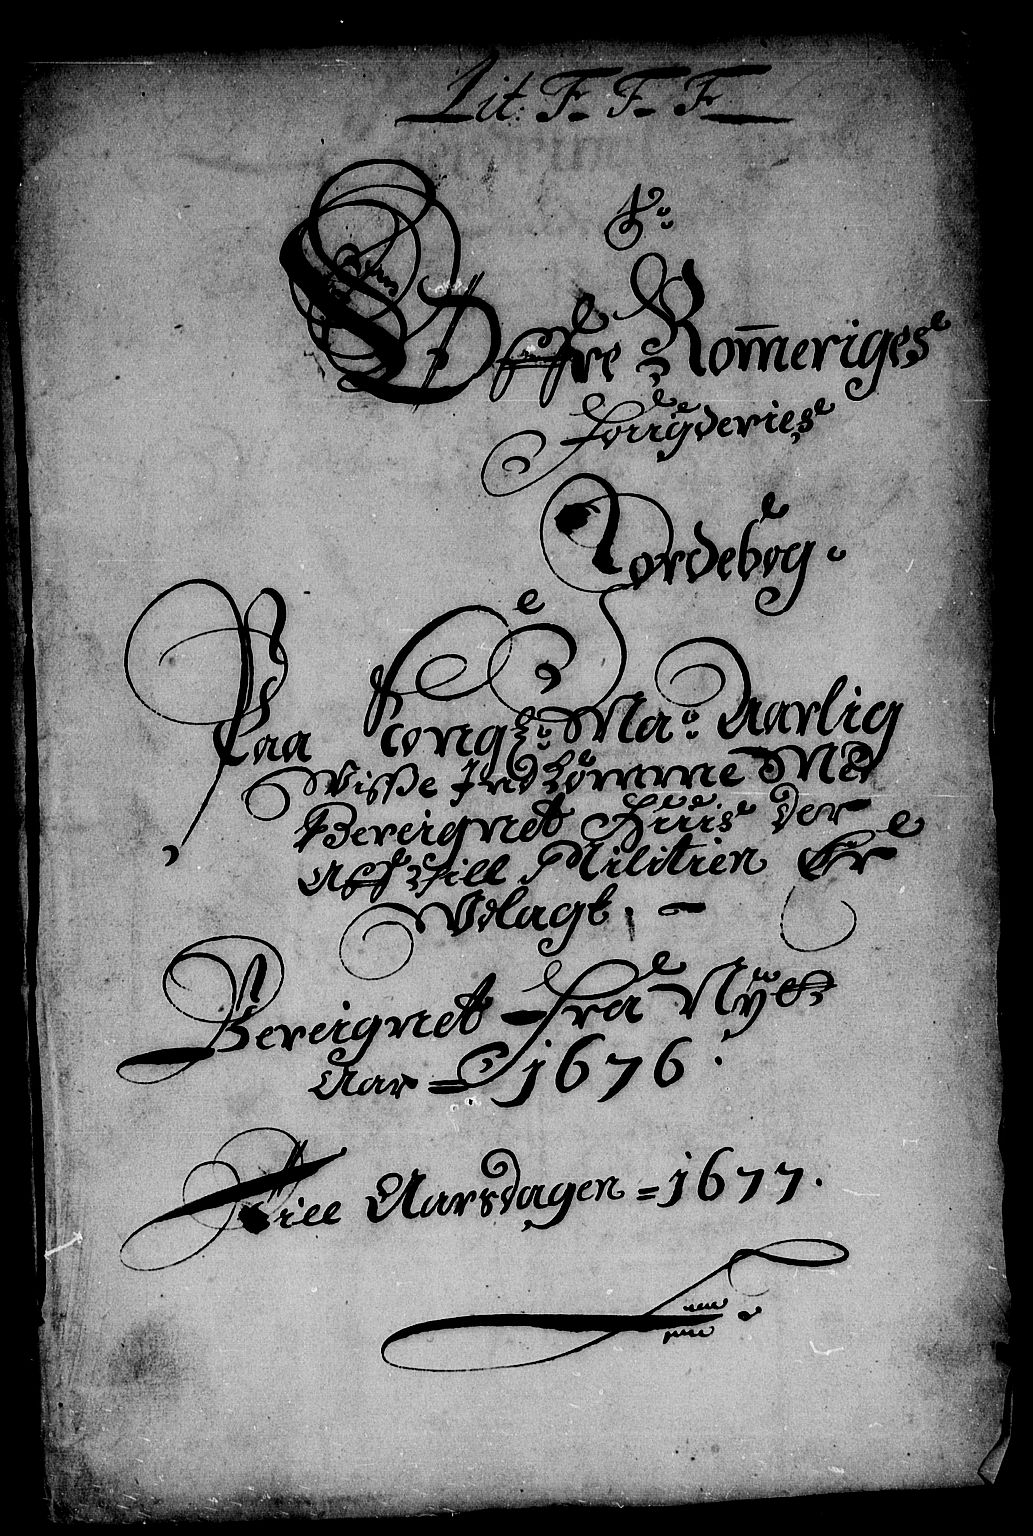 Lit: F. F. F.
1.
Øffre Rom̅eriges
Fougderies
Jordebog.
Paa Kongl: Ma: Aarlig
Visse Indkomme Med
Bereignet Huus der
Aff till Militien Er
Vdlagt, -
Bereignet Fra Nyt
Aar = 1676.
Till Aarsdagen = 1677.